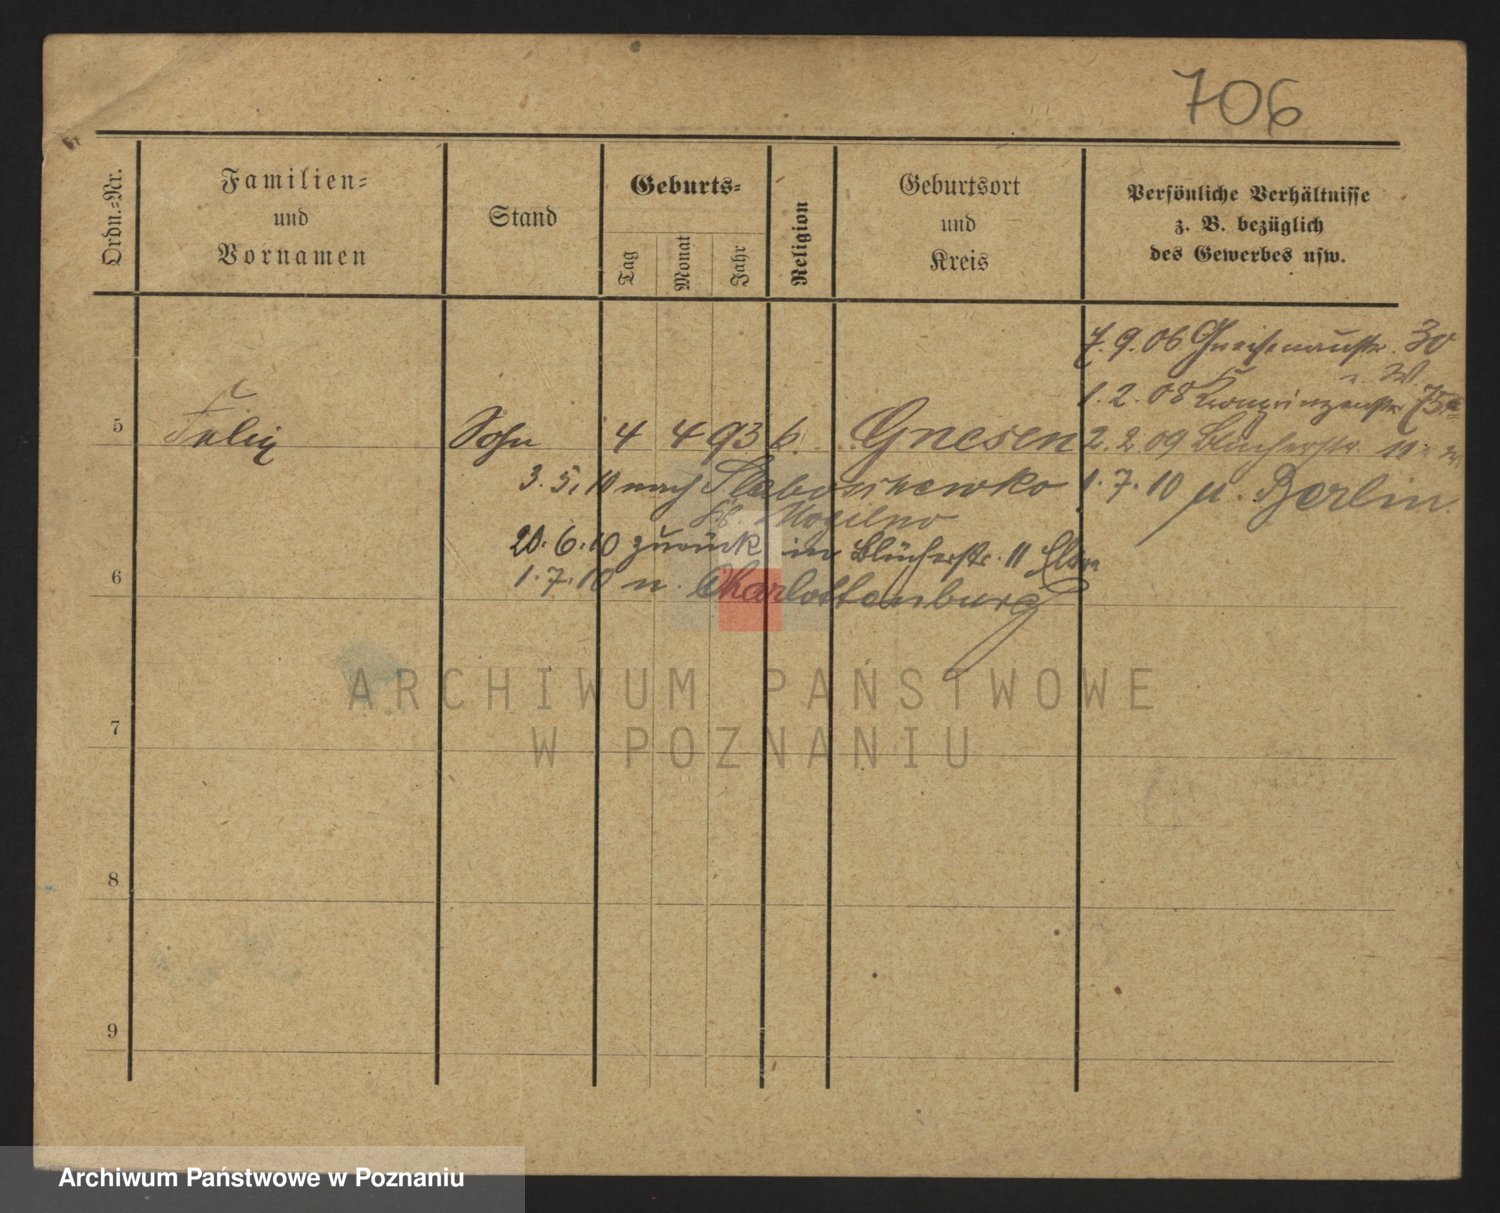 706
Ordn.-Nr.
Familien-
und
Vornamen
Stand
Geburts-
Tag
Monat
Jahr
Religion
Geburtsort
und
Kreis
Persönliche Verhältnisse
z. B. bezüglich
des Gewerbes usw.
7. 9. 06 Gneisenaustr. 30
1. 2. 08 Kronprinzenstr. 75a
5 Felix Sohn 4 4 93 k. Gnesen 2. 2. 09 Blücherstr. 11
3. 5. 10 nach Slaboszewko 1. 7. 10 n. Berlin
Kr. Mogilno
20. 6. 10 zurück in Blücherstr. 11
6
1. 7. 10 n. Charlottenburg
ARCHIWUM PAŃSTWOWE
W POZNANIU
7
8
9
Archiwum Państwowe w Poznaniu